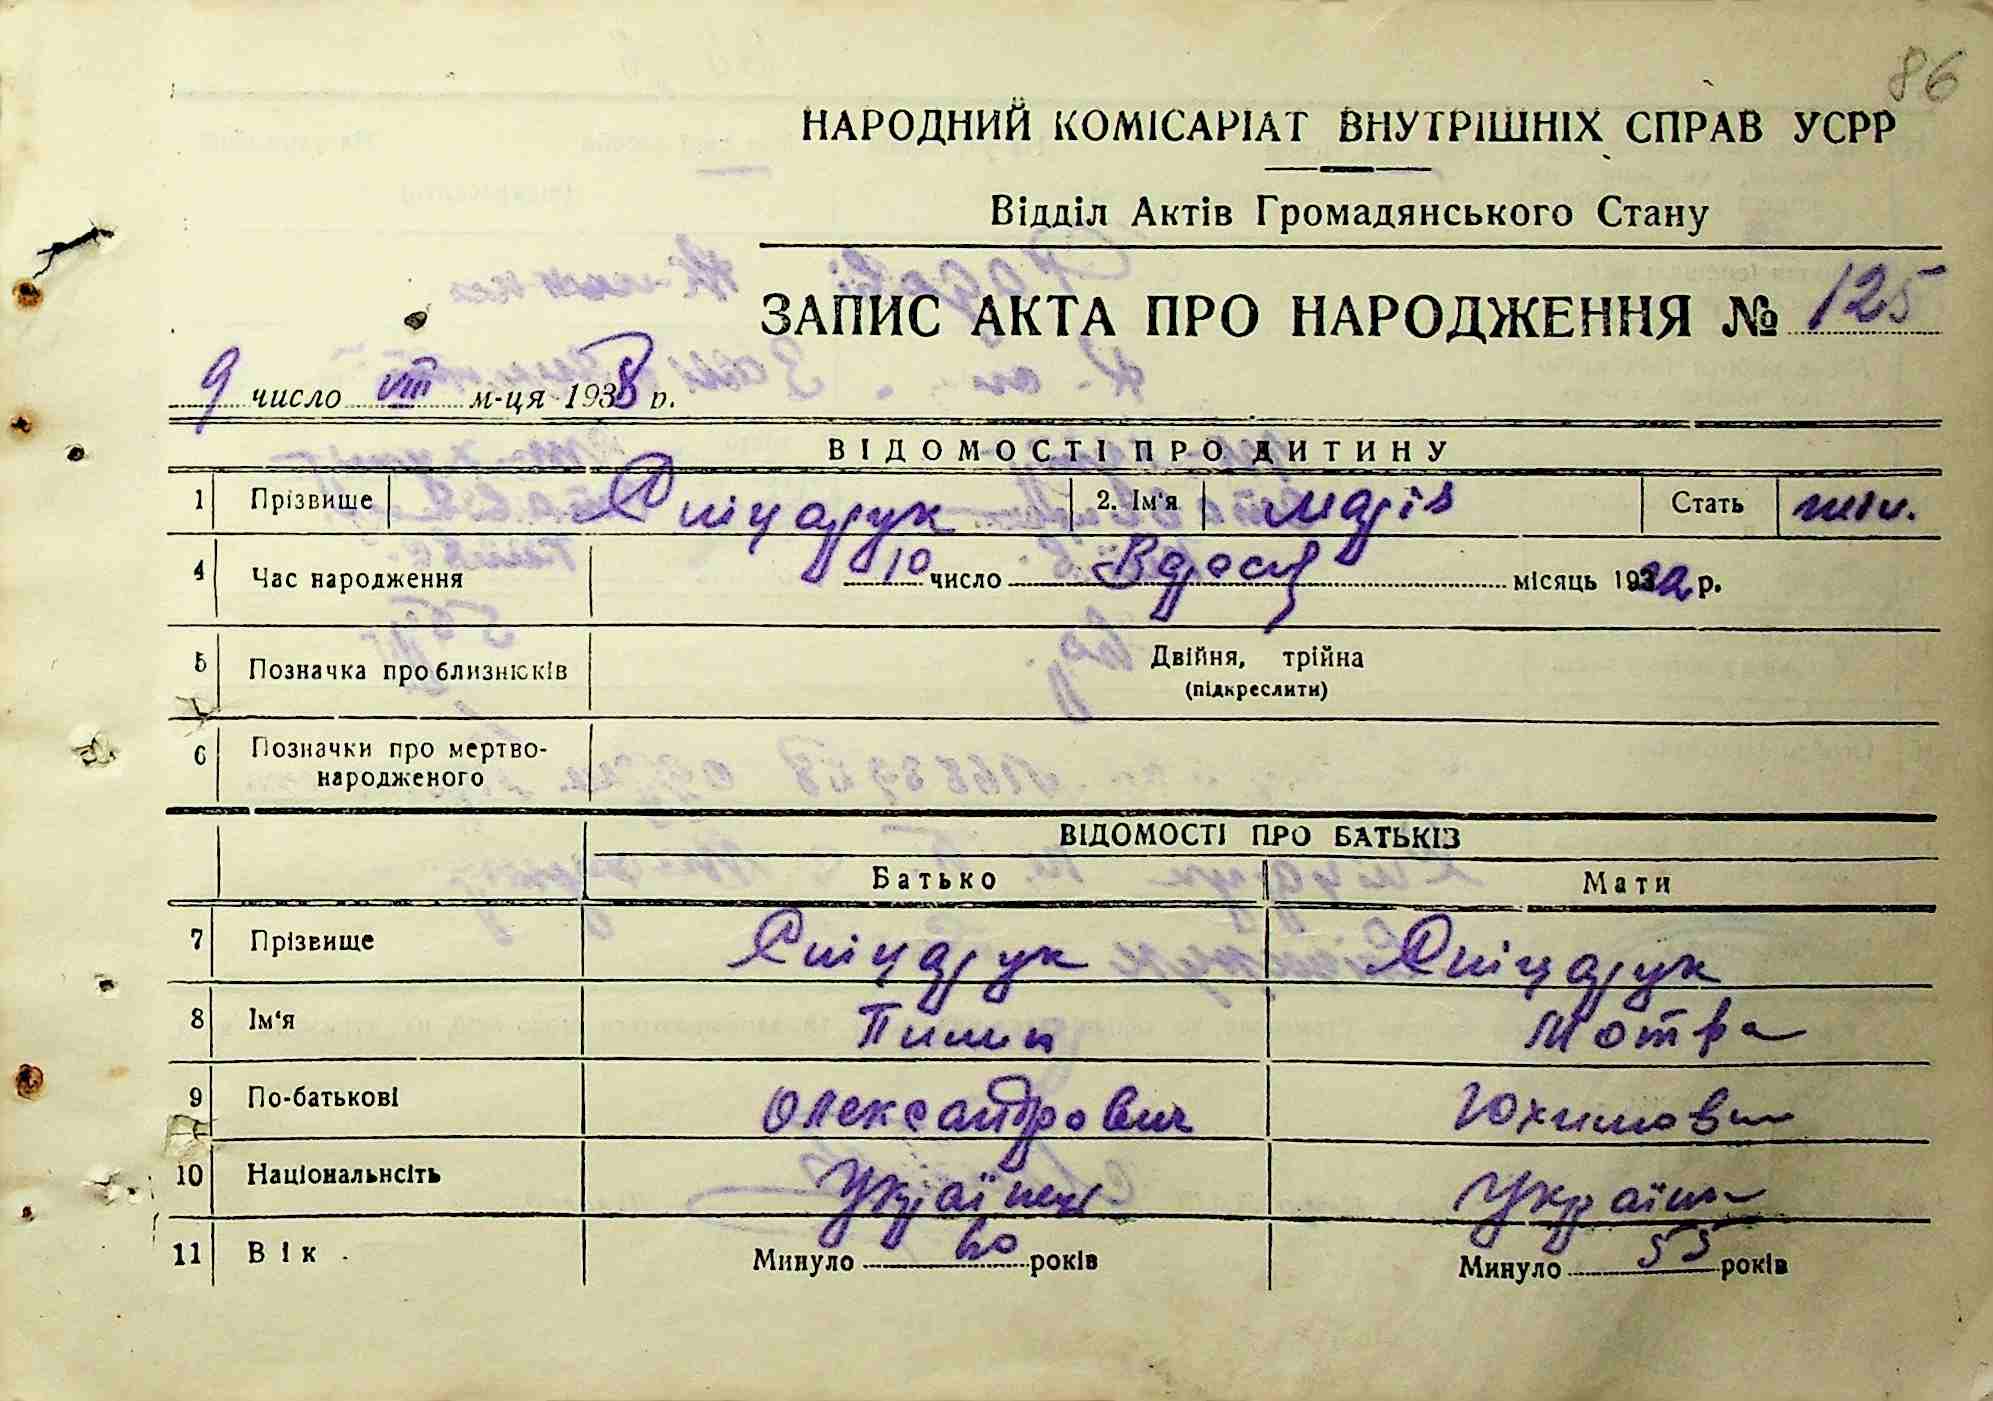 86
НАРОДНИЙ КОМІСАРІАТ ВНУТРІШНІХ СПРАВ УСРР
Відділ Актів Громадянського Стану
ЗАПИС АКТА ПРО НАРОДЖЕННЯ № 125
9 число VIII м-ця 1938 р.
ВІДОМОСТІ ПРО ДИТИНУ
1 Прізвище 2. Ім'я Марія Стать жін.
4 Час народження 10 число місяць 1922 р.
5 Позначка про близнюків Двійня, трійна
(підкреслити)
6 Позначки про мертво-
народженого
ВІДОМОСТІ ПРО БАТЬКІВ
Батько Мати
7 Прізвище
8 Ім'я Пилип Мотря
9 По-батькові Олександрович Юхимовна
10 Національнсіть Українец Українка
11 Вік Минуло 60 років Минуло 55 років